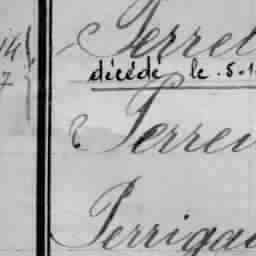 14 Perret
décédé le .5.1
7 Perre
Perriga